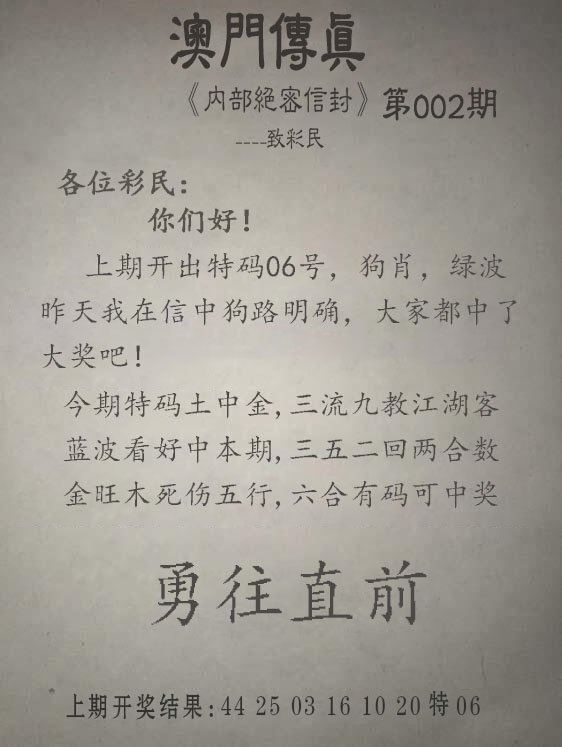 澳門傳眞
《内部絕密信封》第002期
----致彩民
各位彩民：
你们好！
上期开出特码06号，狗肖，绿波
昨天我在信中狗路明确，大家都中了
大奖吧！
今期特码土中金,三流九教江湖客
蓝波看好中本期,三五二回两合数
金旺木死伤五行,六合有码可中奖
勇往直前
上期开奖结果:44 25 03 16 10 20 特 06